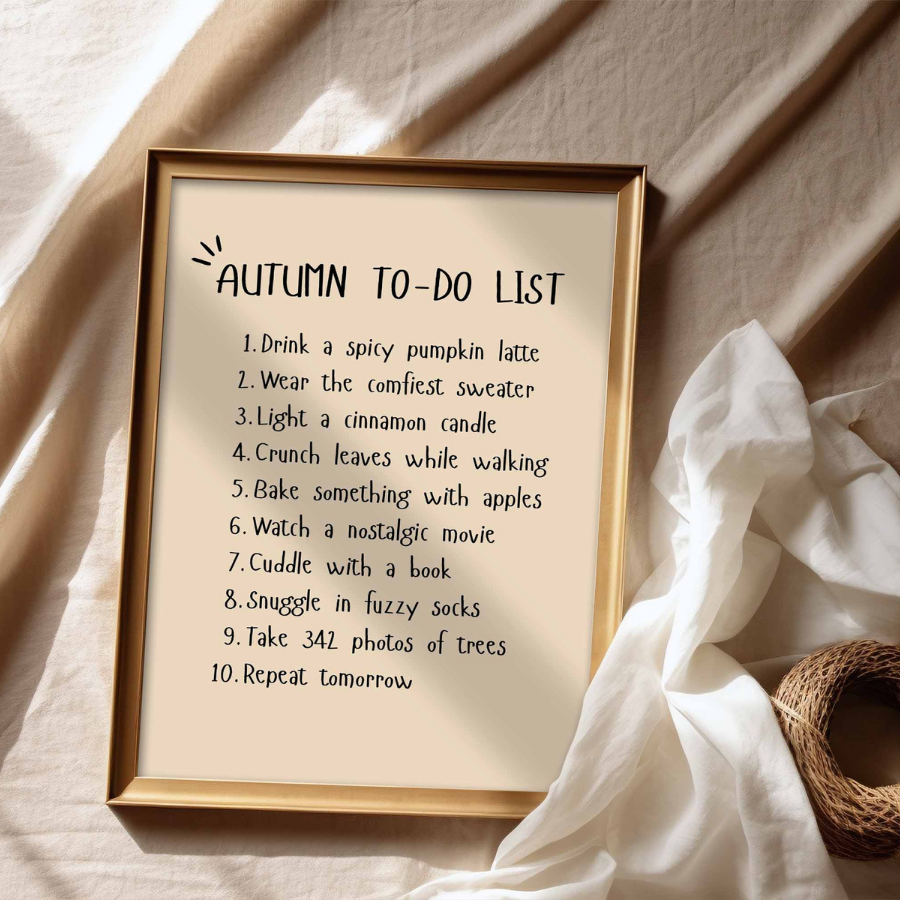 AUTUMN TO-DO LIST
1. Drink a spicy pumpkin latte
2. Wear the comfiest sweater
3. Light a cinnamon candle
4. Crunch leaves while walking
5. Bake something with apples
6. Watch a nostalgic movie
7. Cuddle with a book
8. Snuggle in fuzzy socks
9. Take 342 photos of trees
10. Repeat tomorrow